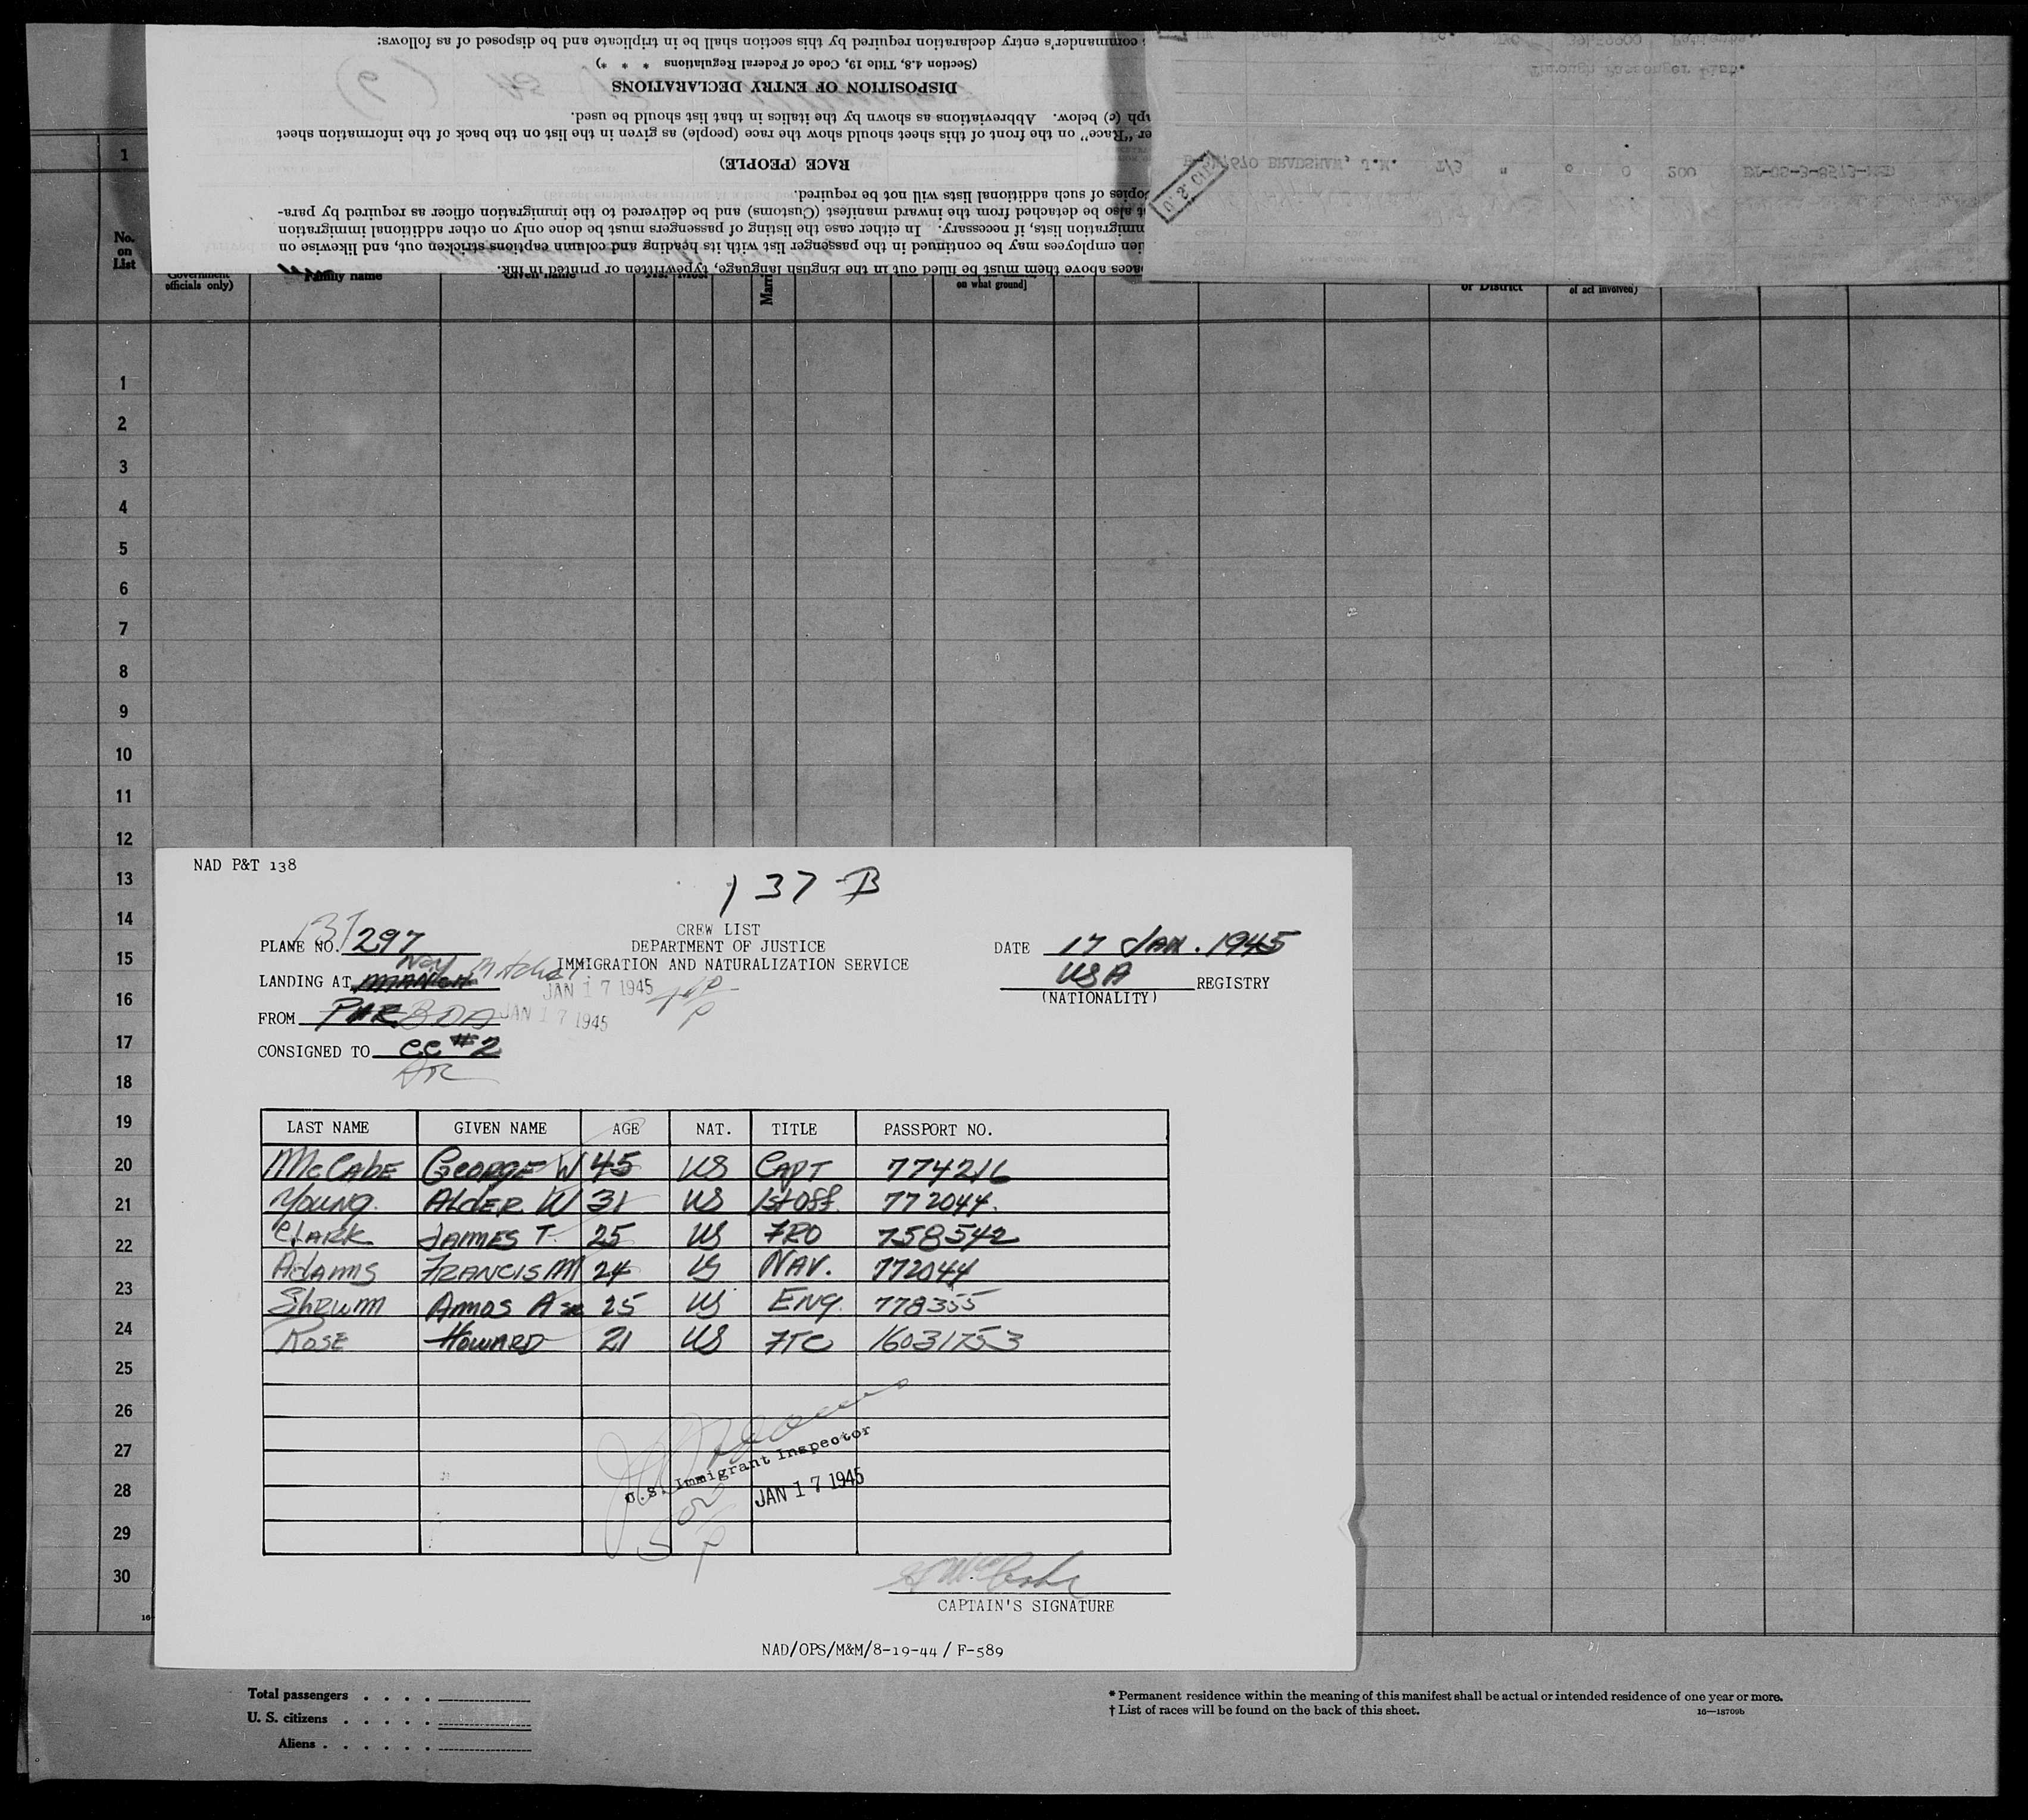 commander's entry declaration required by this section shall be in triplicate and be disposed of as follows:
(Section 4.8, Title 19, Code of Federal Regulations * * *)
DISPOSITION OF ENTRY DECLARATIONS
(c) below. Abbreviations as shown by the italics in that list should be used.
"Race" on the front of this sheet should show the race (people) as given in the list on the back of the information sheet
RACE (PEOPLE)
of such additional lists will not be required.
also be detached from the inward manifest (Customs) and be delivered to the immigration officer as required by para-
immigration lists, if necessary. In either case the listing of passengers must be done only on other additional immigration
employees may be continued in the passenger list with its heading and column captions stricken out, and likewise on
above them must be filled out in the English language, typewritten or printed in ink.
Through Passenger List.
BRADSHAW, J.W. T/3 " 0 0 200
1
No. on List
Government officials only)
Family name
Given name
on what ground]
or District
of act involved)
1
2
3
4
5
6
7
8
9
10
11
12
13
14
15
16
17
18
19
20
21
22
23
24
25
26
27
28
29
30
NAD P&T 138
137-B
CREW LIST
PLANE NO. 297
DEPARTMENT OF JUSTICE
DATE 17 JAN. 1945
IMMIGRATION AND NATURALIZATION SERVICE
LANDING AT
JAN 17 1945
USA REGISTRY
(NATIONALITY)
FROM BDA
JAN 17 1945
CONSIGNED TO CC #2
LAST NAME GIVEN NAME AGE NAT. TITLE PASSPORT NO.
McCabe GEORGE W 45 US CAPT 774216
YOUNG. ALDER W 31 US 1st Off. 772044.
CLARK JAMES T. 25 US FRO 758542
ADAMS FRANCIS M 24 US NAV. 772044
Shrum Amos A 25 US ENG. 778355
ROSE HOWARD 21 US FTC 16031753
U.S. Immigrant Inspector
JAN 17 1945
CAPTAIN'S SIGNATURE
NAD/OPS/M&M/8-19-44 / F-589
Total passengers . . . .
U. S. citizens . . . . .
Aliens . . . . . .
* Permanent residence within the meaning of this manifest shall be actual or intended residence of one year or more.
† List of races will be found on the back of this sheet.
16—18709b